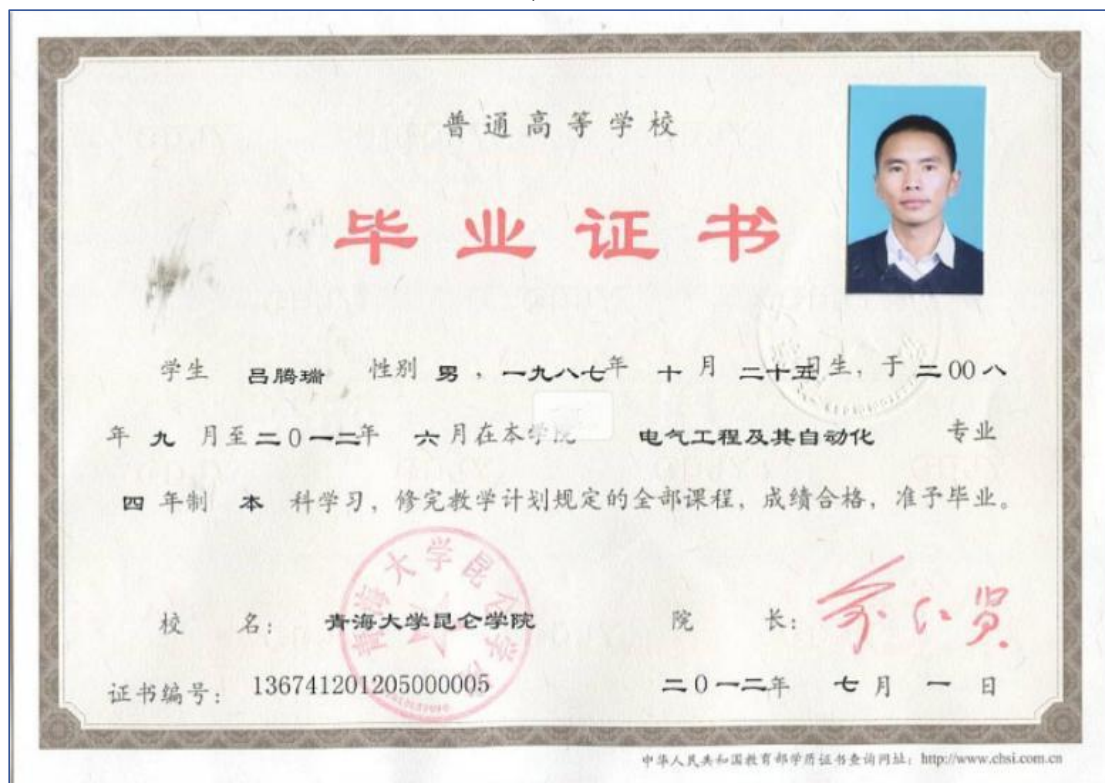 普通高等学校
毕业证书
学生 吕腾瑞 性别 男，一九八七年 十 月 二十五日生，于二00八
年 九 月至二0一二年 六月在本学院 电气工程及其自动化 专业
四 年制 本 科学习，修完教学计划规定的全部课程，成绩合格，准予毕业。
校 名： 青海大学昆仑学院 院 长：
青海大学昆仑学院
证书编号： 136741201205000005 二0一二年 七月 一 日
中华人民共和国教育部学历证书查询网址：http://www.chsi.com.cn